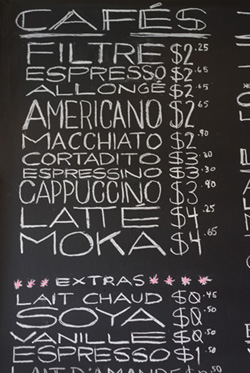 CAFÉS
FILTRE $2.25
ESPRESSO $2.65
ALLONGÉ $2.65
AMERICANO $2.65
MACCHIATO $2.90
CORTADITO $3.30
ESPRESSINO $3.30
CAPPUCCINO $3.90
LATTÉ $4.25
MOKA $4.65
EXTRAS
LAIT CHAUD $0.45
SOYA $0.50
VANILLE $0.50
ESPRESSO $1.50
LAIT D'AMANDE